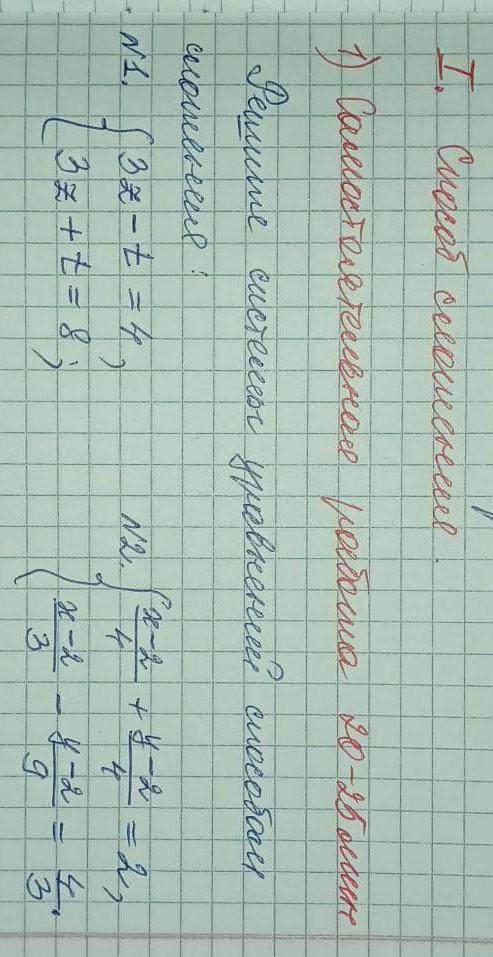 I. Способ сложения.
1) Самостоятельная работа 20-25 мин
Решите системы уравнений способом
сложения:
N1. { 3z - t = 4, 3z + t = 8;
N2. { (x-2)/4 + (y-2)/4 = 2, (x-2)/3 - (y-2)/9 = 4/3.